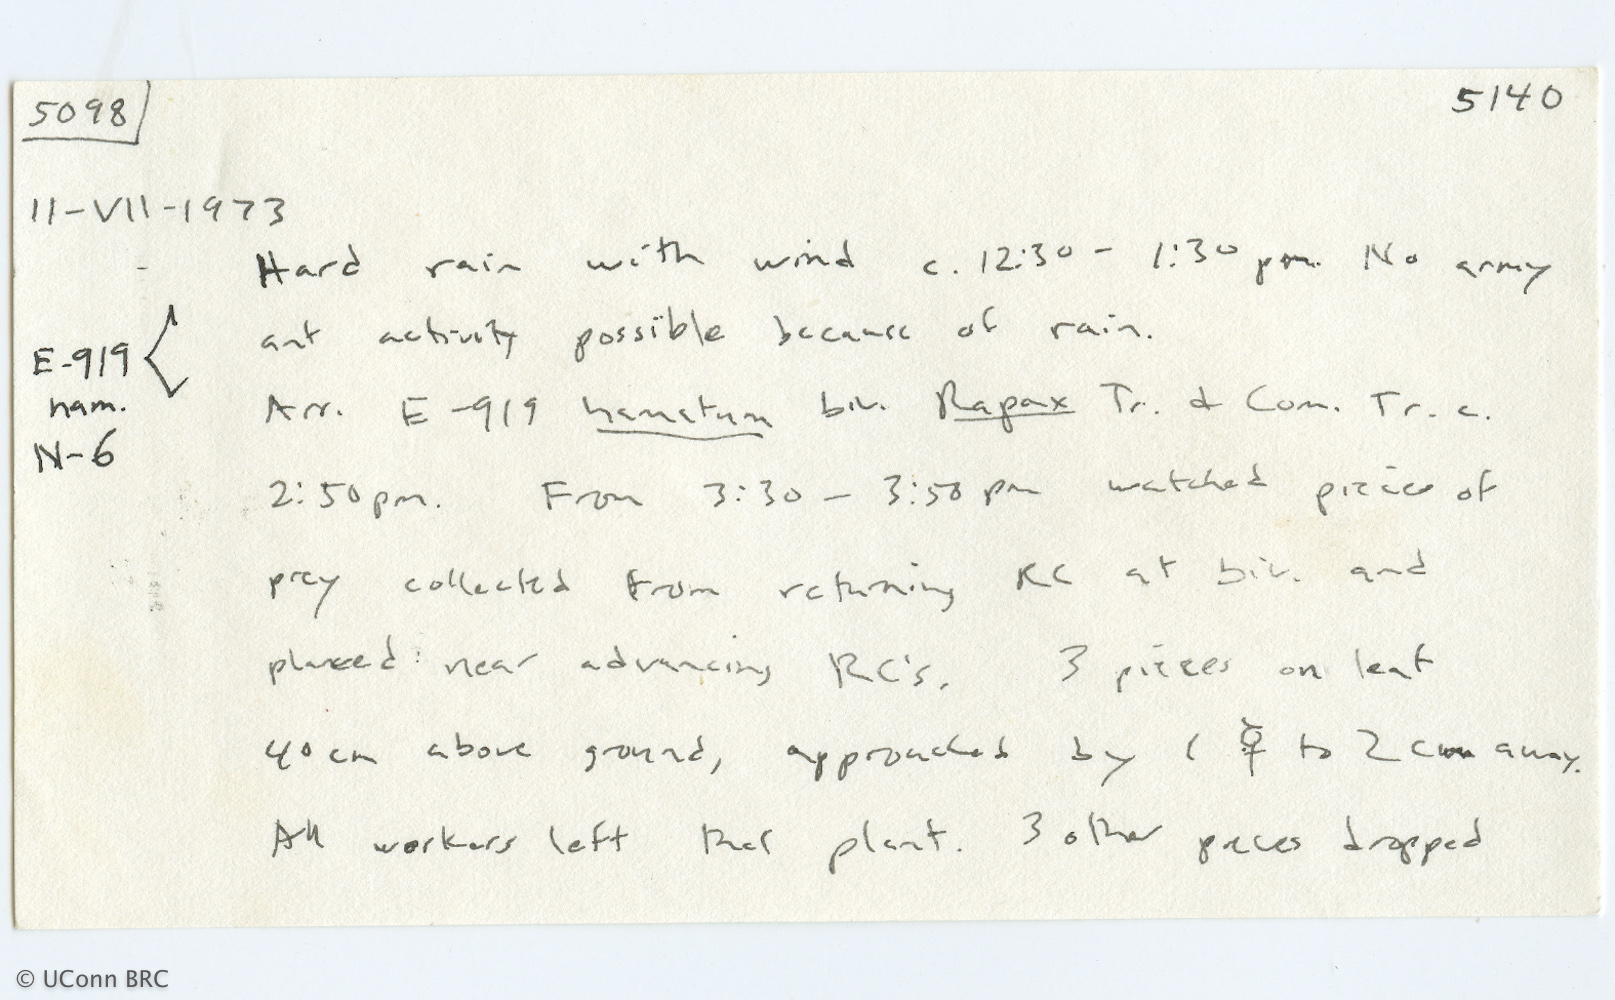 5098
5140
11-VII-1973
Hard rain with wind c. 12:30 - 1:30 pm. No army
ant activity possible because of rain.
E-919
ham.
N-6
Arr. E-919 hamatum biv. Rapax Tr. & Com. Tr. c.
2:50 pm. From 3:30 - 3:50 pm watched pieces of
prey collected from returning RC at biv. and
placed near advancing RC's. 3 pieces on leaf
40 cm above ground, approached by 1 ☿ to 2 cm away.
All workers left that plant. 3 other pieces dropped
© UConn BRC